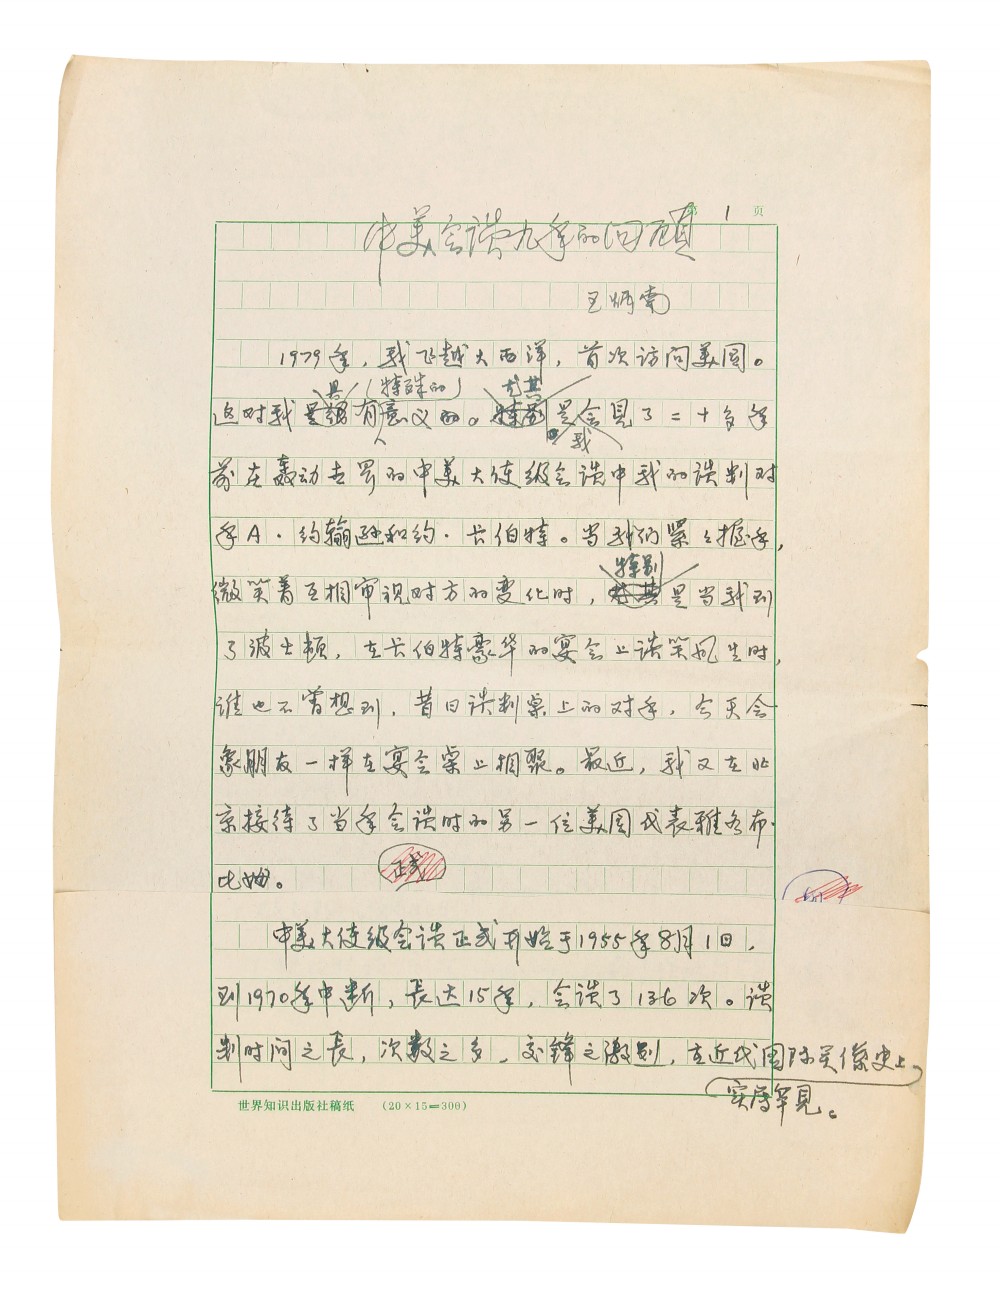 第 1 页
中美会谈九年的回顾
王炳南
1979年，我飞越大西洋，首次访问美国。
具（特殊的） 尤其
这对我是 有意义的。特别是会见了二十多年
我
前在轰动世界的中美大使级会谈中我的谈判对
手A·约翰逊和约·卡伯特。当我们紧紧握手，
特别
微笑着互相审视对方的变化时，尤其是当我到
了波士顿，在卡伯特豪华的宴会上谈笑风生时，
谁也不曾想到，昔日谈判桌上的对手，今天会
象朋友一样在宴会桌上相聚。最近，我又在北
京接待了当年会谈时的另一位美国代表雅各布·
比姆。
正式
中美大使级会谈正式开始于1955年8月1日，
到1970年中断，長达15年，会谈了136次。谈
判时间之長，次数之多，交鋒之激剧，在近代国际关係史上，
实属罕見。
世界知识出版社稿纸 （20×15=300）